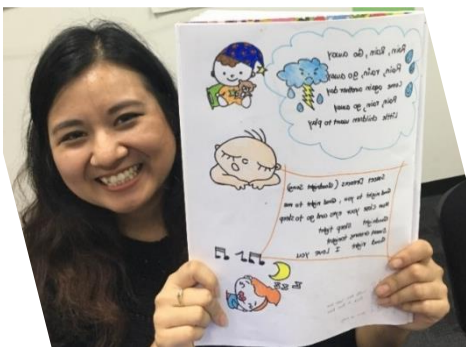 Rain, Rain, Go away
Rain, rain, go away
Come again another day
Rain, rain, go away
Little children want to play
Sweet Dreams (Goodnight Song)
Good night to you, Good night to me
Now close your eyes and go to sleep
Goodnight Sleep tight
Sweet dreams tonight
Good night I love you